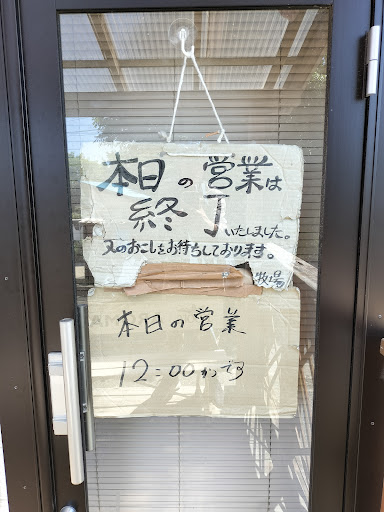 本日の営業は
終了
いたしました。
又のおこしをお待ちしております。
牧場
本日の営業
12:00からです